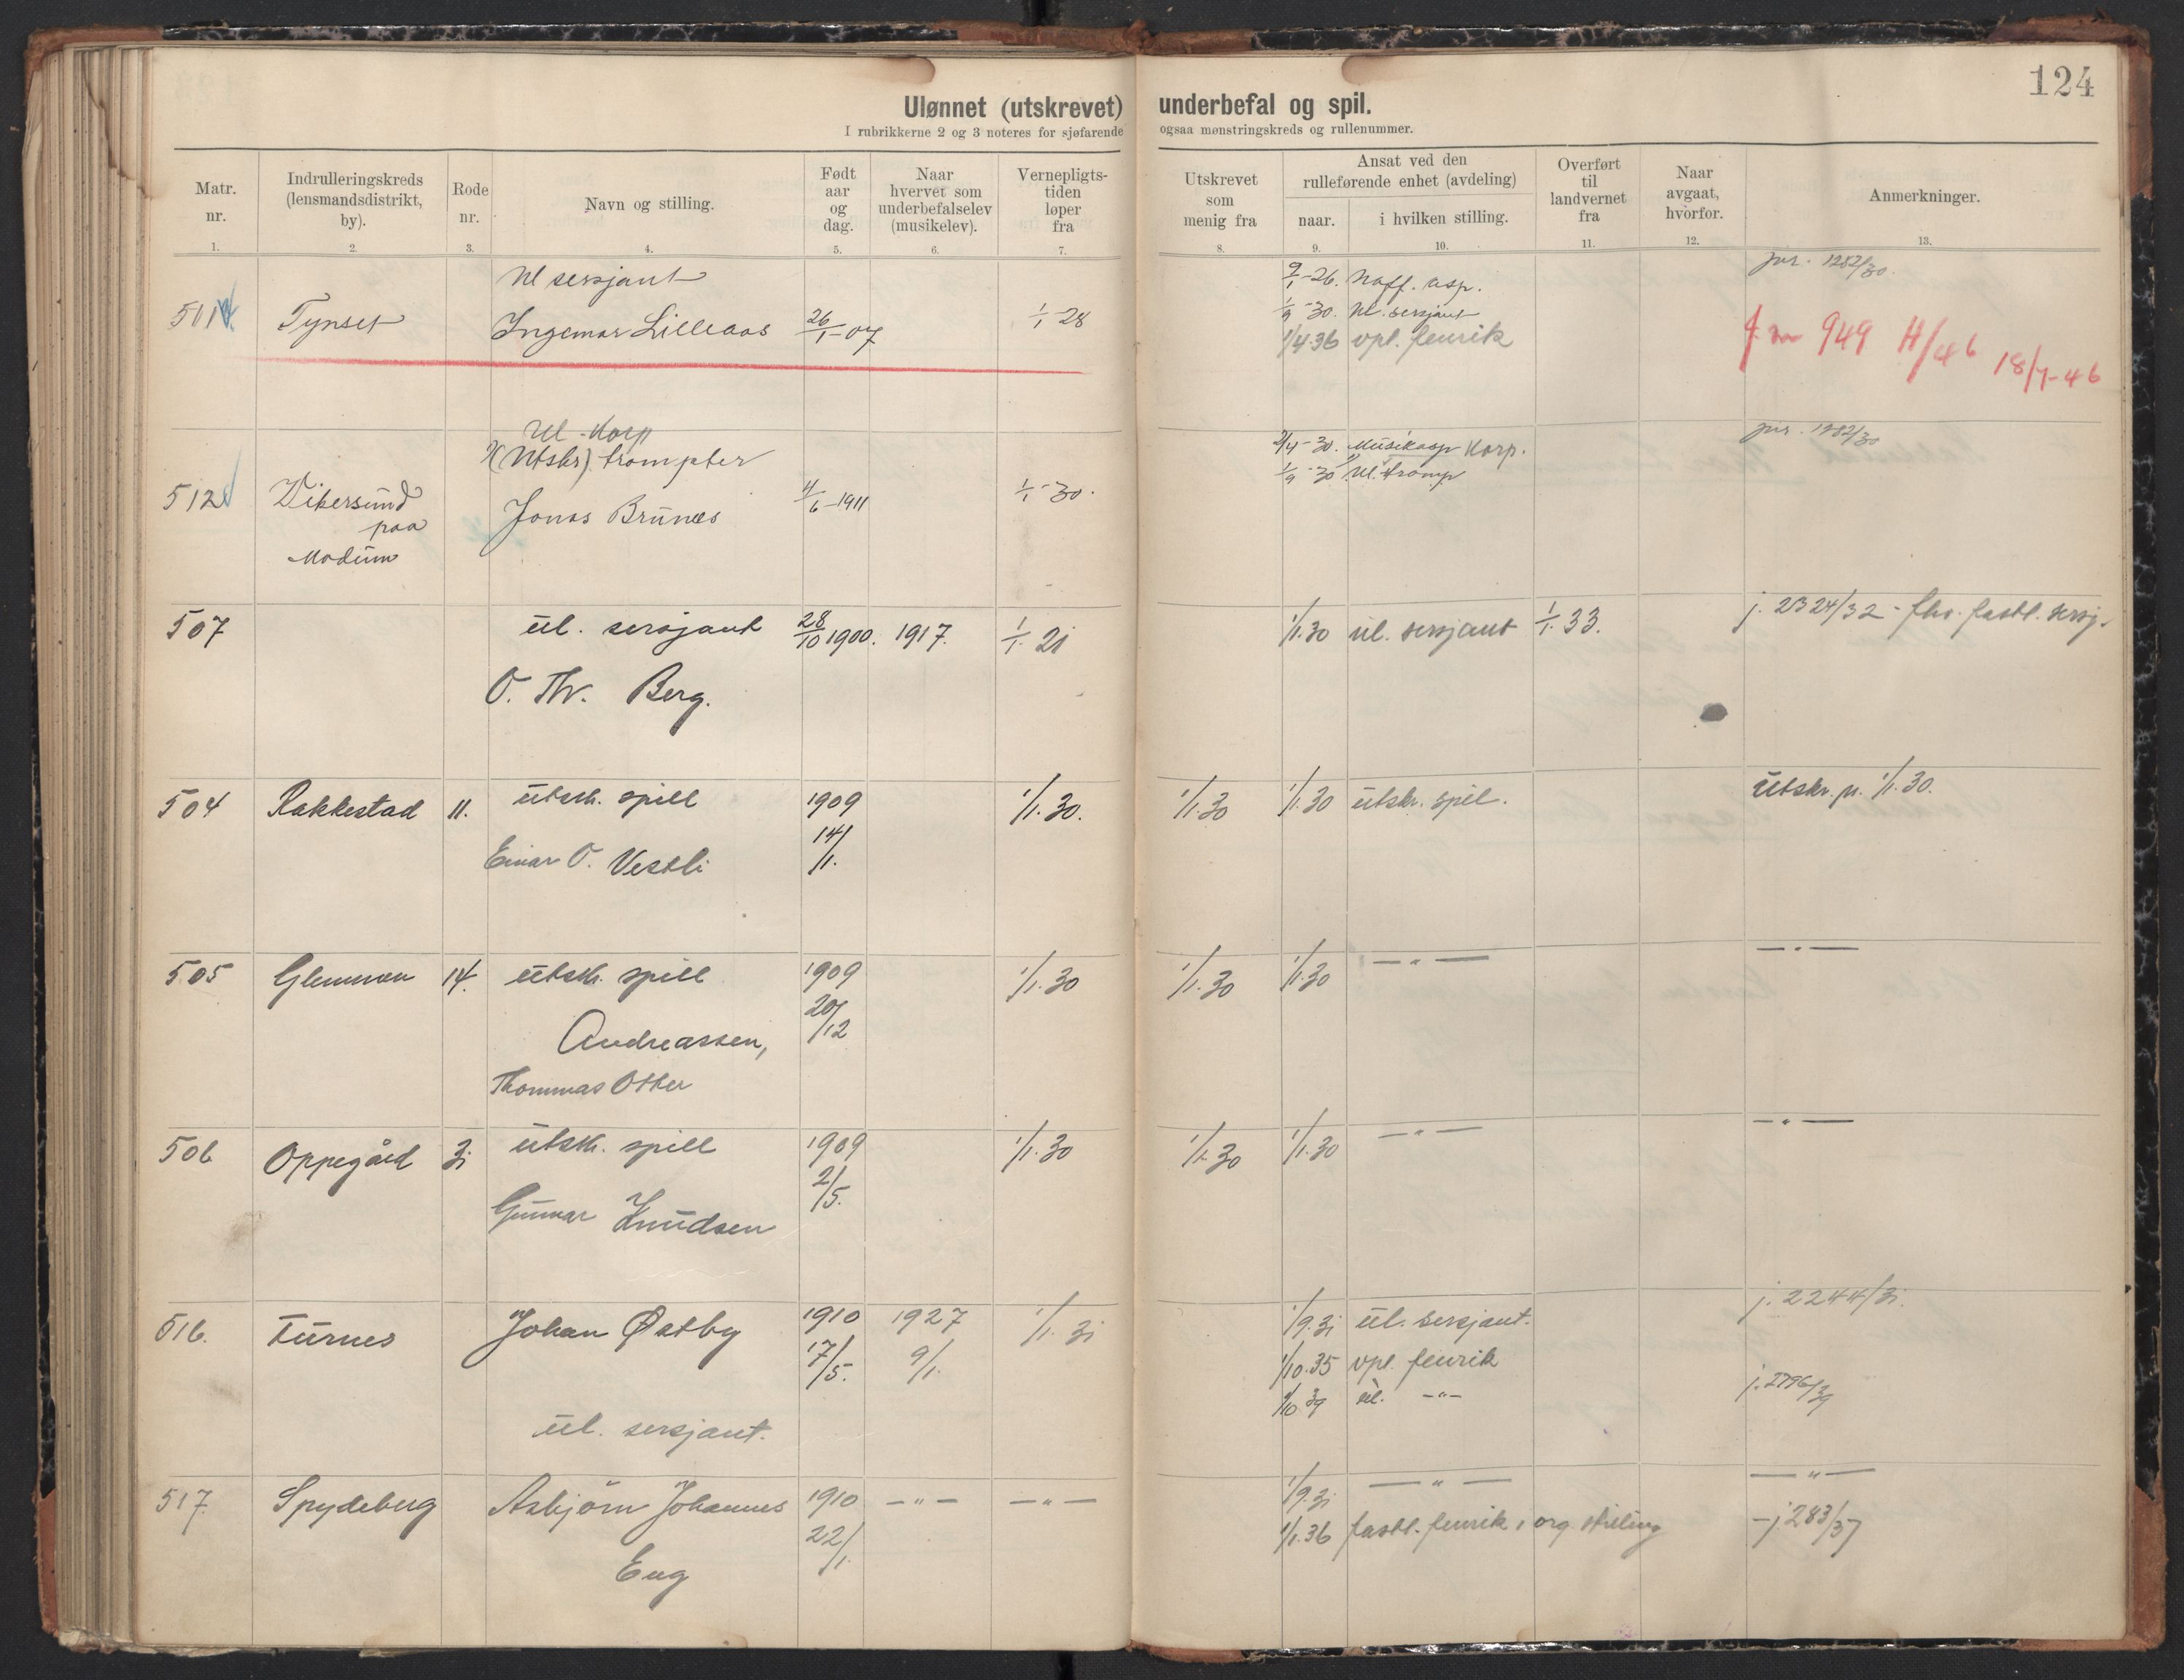 124
Ulønnet (utskrevet) underbefal og spil.
I rubrikkerne 2 og 3 noteres for sjøfarende ogsaa mønstringskreds og rullenummer.
Matr. nr.
Indrulleringskreds (lensmandsdistrikt, by).
Rode nr.
Navn og stilling.
Født aar og dag.
Naar hvervet som underbefalselev (musikelev).
Vernepligts- tiden løper fra
Utskrevet som menig fra
Ansat ved den rulleførende enhet (avdeling)
naar.
i hvilken stilling.
Overført til landvernet fra
Naar avgaat, hvorfor.
Anmerkninger.
1. 2. 3. 4. 5. 6. 7. 8. 9. 10. 11. 12. 13.
Ul sersjant
9/1-26. Uoff. asp.
jnr. 1282/30.
511 Tynset Ingemar Lilleaas 26/1-07 1/1-28
1/9-30. Ul. sersjant
1/4 36 vpl. fenrik
J nr 949 H/46 18/7-46
Ul - Korp
(Utskr) trompter
2/4-30. Musikasp Korp.
jnr. 1282/30
1/9-30 Ul. tromp
512 Vikersund paa Modum Jonas Brunes 4/6-1911 1/1-30.
507 ul. sersjant 28/10 1900. 1917. 1/1 21 1/1.30 ul. sersjant 1/1.33. j. 2324/32 - fhv. fastl. sersj.
O. Th. Berg.
504 Rakkestad 11. utsk. spill 1909 1/1.30. 1/1.30 1/1.30 utskr. spil. Utskr. p. 1/1.30.
Einar O. Vestli 14/1.
505 Glemmen 14. utsk. spill 1909 1/1.30 1/1.30 1/1.30 — " — — " —
20/12
Andreassen,
Thommas Otter
506 Oppegård 31 utsk. spill 1909 1/1.30 1/1.30 1/1.30 — " — — " —
2/5.
Gunnar Knudsen
516. Furnes Johan Østby 1910 1927 1/1.31 1/9.31 ul. sersjant. j. 2244/31.
17/5. 9/1. 1/10.35 vpl. fenrik
1/10.39 ul. — " — j. 2796/39
ul. sersjant.
517. Spydeberg Asbjörn Johannes 1910 — " — — " — 1/9.31 — " — — " —
22/1. 1/1.36 fastl. fenrik i org. stilling - j 283/37
Eng